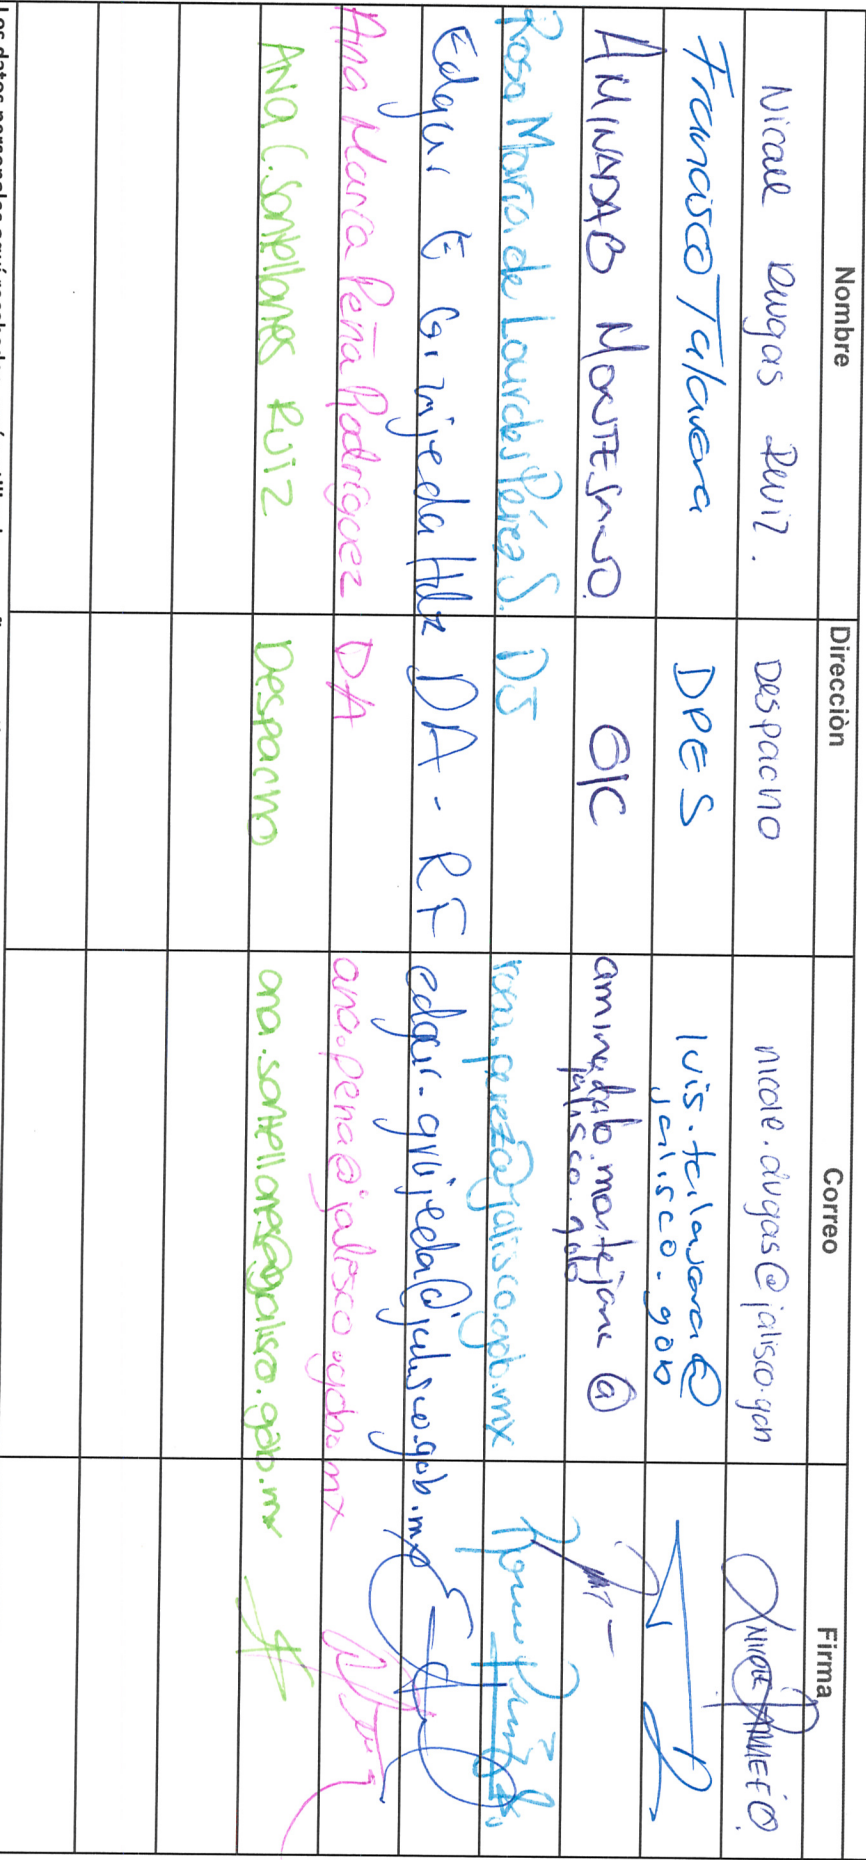 Nombre Direcciòn Correo Firma
Nicole Dugas Ruiz. Despacho nicole.dugas@jalisco.gob
Francisco Talavera DPES luis.talavera@
jalisco.gob
AMINADAB MONTESANO OIC
jalisco.gob
Rosa María de Lourdes Pérez S. DJ rosa.perez@jalisco.gob.mx
Edgar E Grijeda Hdz DA - RF edgar.grijeda@jalisco.gob.mx
Ana María Peña Rodríguez DA ana.pena@jalisco.gob.mx
ANA C. Santellanes RUIZ Despacho ana.santellanes@jalisco.gob.mx
Los datos personales aquí recabados